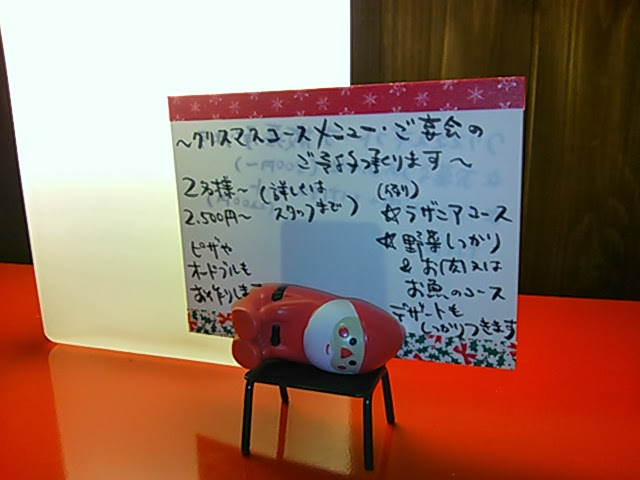 〜クリスマスコースメニュー・ご宴会の
ご予約承ります〜
2名様〜(詳しくは
スタッフまで)
2,500円〜
ピザや
オードブルも
お作りします
(例)
☆ラザニアコース
☆野菜しっかり
& お肉又は
お魚のコース
デザートも
しっかりつきます